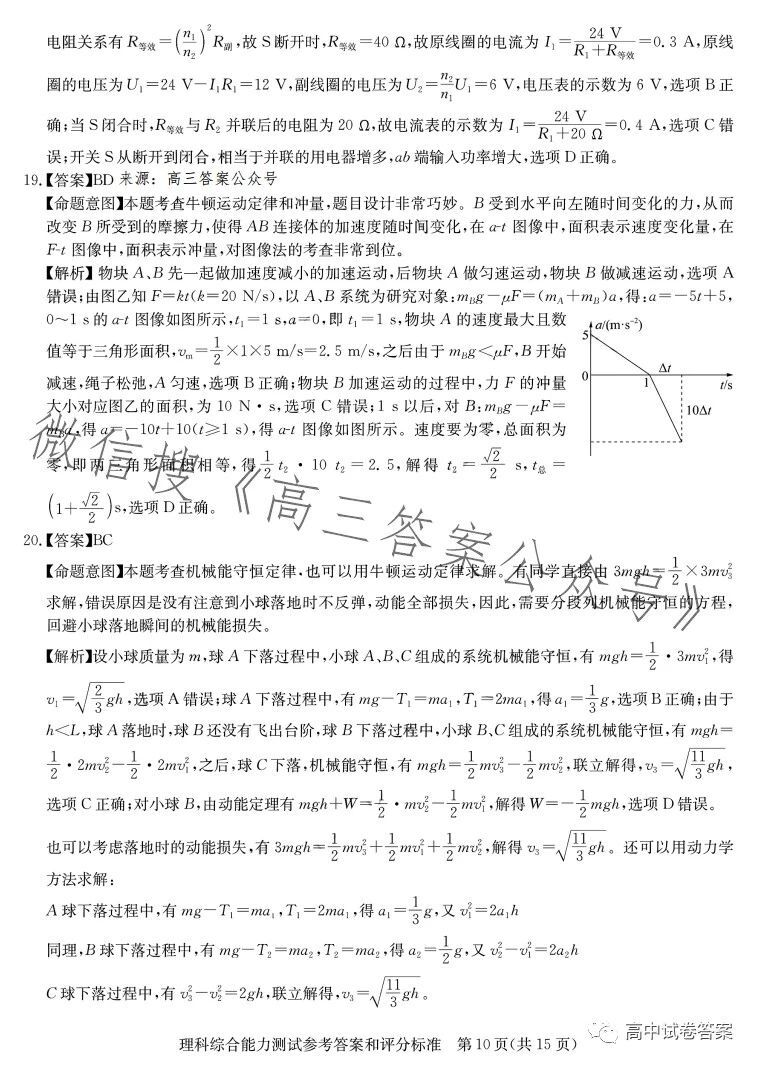 电阻关系有 R等效=(n₁/n₂)²R副,故 S 断开时,R等效=40 Ω,故原线圈的电流为 I₁=24 V/(R₁+R等效)=0.3 A,原线
圈的电压为 U₁=24 V-I₁R₁=12 V,副线圈的电压为 U₂=n₂/n₁U₁=6 V,电压表的示数为 6 V,选项 B 正
确;当 S 闭合时,R等效与 R₂ 并联后的电阻为 20 Ω,故电流表的示数为 I₁=24 V/(R₁+20 Ω)=0.4 A,选项 C 错
误;开关 S 从断开到闭合,相当于并联的用电器增多,ab 端输入功率增大,选项 D 正确。
19.【答案】BD 来源：高三答案公众号
【命题意图】本题考查牛顿运动定律和冲量,题目设计非常巧妙。B 受到水平向左随时间变化的力,从而
改变 B 所受到的摩擦力,使得 AB 连接体的加速度随时间变化,在 a-t 图像中,面积表示速度变化量,在
F-t 图像中,面积表示冲量,对图像法的考查非常到位。
【解析】物块 A、B 先一起做加速度减小的加速运动,后物块 A 做匀速运动,物块 B 做减速运动,选项 A
错误;由图乙知 F=kt(k=20 N/s),以 A、B 系统为研究对象:mBg-μF=(mA+mB)a,得:a=-5t+5,
0~1 s 的 a-t 图像如图所示,t₁=1 s,a=0,即 t₁=1 s,物块 A 的速度最大且数
值等于三角形面积,vm=1/2×1×5 m/s=2.5 m/s,之后由于 mBg<μF,B 开始
减速,绳子松弛,A 匀速,选项 B 正确;物块 B 加速运动的过程中,力 F 的冲量
大小对应图乙的面积,为 10 N·s,选项 C 错误;1 s 以后,对 B:mBg-μF=
mBa,得 a=-10t+10(t≥1 s),得 a-t 图像如图所示。速度要为零,总面积为
零,即两三角形面积相等,得 1/2 t₂·10 t₂=2.5,解得 t₂=√2/2 s,t总=
(1+√2/2)s,选项 D 正确。
a/(m·s⁻²)
5
Δt
0
1
t/s
10Δt
20.【答案】BC
【命题意图】本题考查机械能守恒定律,也可以用牛顿运动定律求解。有同学直接由 3mgh=1/2×3mv₃²
求解,错误原因是没有注意到小球落地时不反弹,动能全部损失,因此,需要分段列机械能守恒的方程,
回避小球落地瞬间的机械能损失。
【解析】设小球质量为 m,球 A 下落过程中,小球 A、B、C 组成的系统机械能守恒,有 mgh=1/2·3mv₁²,得
v₁=√(2/3 gh),选项 A 错误;球 A 下落过程中,有 mg-T₁=ma₁,T₁=2ma₁,得 a₁=1/3 g,选项 B 正确;由于
h<L,球 A 落地时,球 B 还没有飞出台阶,球 B 下落过程中,小球 B、C 组成的系统机械能守恒,有 mgh=
1/2·2mv₂²-1/2·2mv₁²,之后,球 C 下落,机械能守恒,有 mgh=1/2mv₃²-1/2mv₂²,联立解得,v₃=√(11/3 gh),
选项 C 正确;对小球 B,由动能定理有 mgh+W=1/2·mv₂²-1/2mv₁²,解得 W=-1/2mgh,选项 D 错误。
也可以考虑落地时的动能损失,有 3mgh=1/2mv₃²+1/2mv₁²+1/2mv₂²,解得 v₃=√(11/3 gh)。还可以用动力学
方法求解:
A 球下落过程中,有 mg-T₁=ma₁,T₁=2ma₁,得 a₁=1/3 g,又 v₁²=2a₁h
同理,B 球下落过程中,有 mg-T₂=ma₂,T₂=ma₂,得 a₂=1/2 g,又 v₂²-v₁²=2a₂h
C 球下落过程中,有 v₃²-v₂²=2gh,联立解得,v₃=√(11/3 gh)。
微信搜《高三答案公众号》
高中试卷答案
理科综合能力测试参考答案和评分标准 第 10 页(共 15 页)